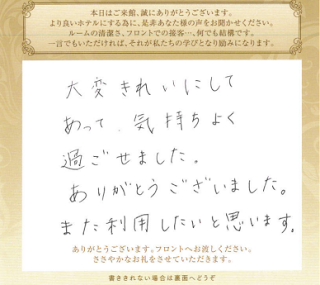 本日はご来館、誠にありがとうございます。
より良いホテルにする為に、是非あなた様の声をお聞かせください。
ルームの清潔さ、フロントでの接客…、何でも結構です。
一言でもいただければ、それが私たちの学びとなり励みになります。
大変きれいにして
あって、気持ちよく
過ごせました。
ありがとうございました。
また利用したいと思います。
ありがとうございます。フロントへお渡しください。
ささやかなお礼をさせていただきます。
書ききれない場合は裏面へどうぞ